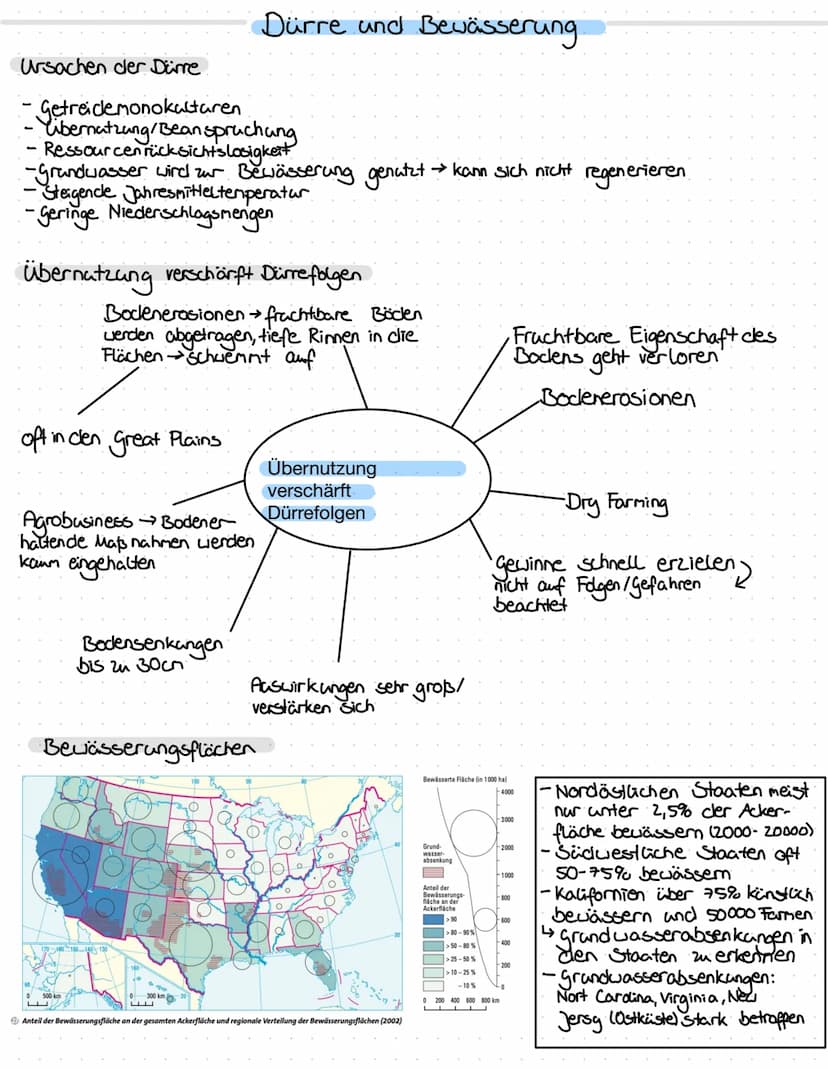 Dürre und Bewässerung
Ursachen der Dürre
- Getreidemonokulturen
- Übernutzung/Beanspruchung
- Ressourcenrücksichtslosigkeit
- Grundwasser wird zur Bewässerung genutzt → kann sich nicht regenerieren
- Steigende Jahresmitteltemperatur
- Geringe Niederschlagsmengen
Übernutzung verschärft Dürrefolgen
Bodenerosionen → fruchtbare Böden
werden abgetragen, tiefe Rinnen in die
Flächen → schwemmt auf
oft in den Great Plains
Agrobusiness → Bodener-
haltende Maßnahmen werden
kaum eingehalten
Bodensenkungen
bis zu 30cm
Auswirkungen sehr groß/
verstärken sich
Übernutzung
verschärft
Dürrefolgen
Fruchtbare Eigenschaft des
Bodens geht verloren
Bodenerosionen
Dry Farming
Gewinne schnell erzielen
nicht auf Folgen/Gefahren
beachtet
Bewässerungsflächen
500 km
300 km
Anteil der Bewässerungsfläche an der gesamten Ackerfläche und regionale Verteilung der Bewässerungsflächen (2002)
Bewässerte Fläche (in 1000 ha)
4000
3000
2000
1000
800
600
400
200
0
Grund-
wasser-
absenkung
Anteil der
Bewässerungs-
fläche an der
Ackerfläche
> 90
> 80 – 90%
> 50 – 80%
> 25 – 50%
> 10 – 25%
– 10%
0 200 400 600 800 km
- Nordöstlichen Staaten meist
nur unter 2,5% der Acker-
fläche bewässern (2000-20000)
- Südwestliche Staaten oft
50-75% bewässern
- Kalifornien über 75% künstlich
bewässern und 50000 Farmen
↳ Grundwasserabsenkungen in
den Staaten zu erkennen
- Grundwasserabsenkungen:
Nort Carolina, Virginia, New
Jersy (Ostküste) stark betroffen